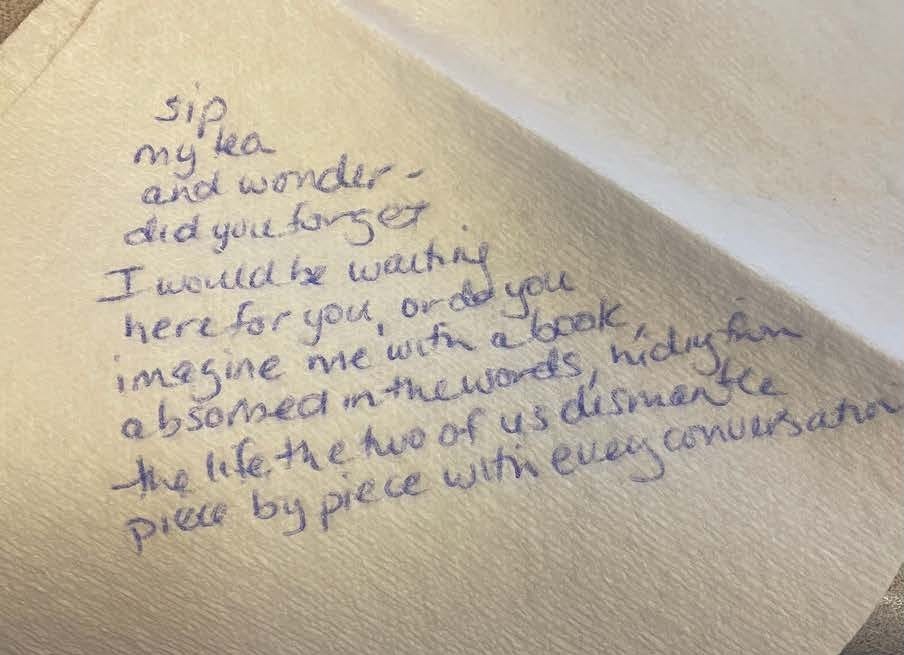 sip
my tea
and wonder -
did you forget
I would be waiting
here for you, or do you
imagine me with a book,
absorbed in the words, hiding from
the life the two of us dismantle
piece by piece with every conversation